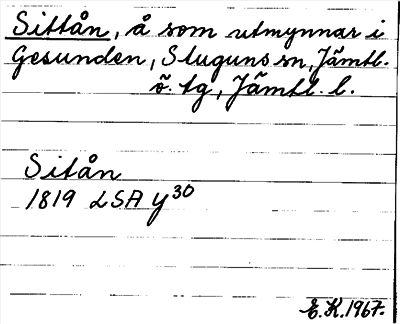 Sittån, å som utmynnar i
Gesunden, Stuguns sn, Jämtl.
ö. tg, Jämtl. l.
Sitån
1819 LSA y30
E.K. 1967.